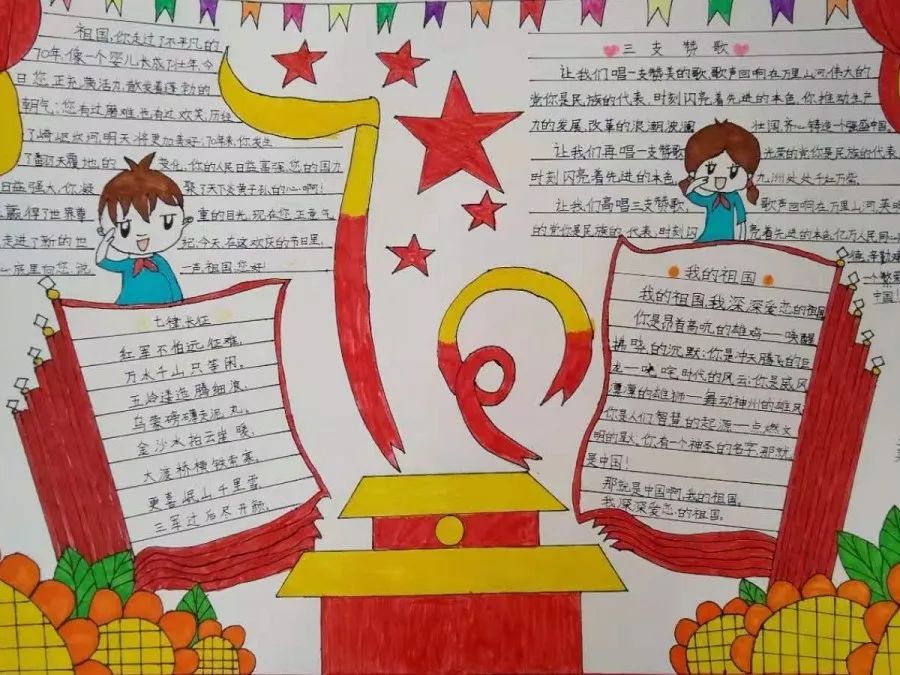 祖国,你走过了不平凡的
70年,像一个婴儿长成了壮年今
日您,正充满活力,散发着蓬勃的
朝气;您有过磨难也有过欢笑,历经
了崎岖坎坷,明天将更加美好,70年来,你发生
了翻天覆地的变化,你的人民日益富强,您的国力
日益强大,你凝聚了天下炎黄子孙的心啊!
赢得了世界尊重的目光,现在您,正意气
走进了新的世纪,今天,在这欢庆的节日里,
心底里向您,说一声祖国,您好!
七律长征
红军不怕远征难,
万水千山只等闲。
五岭逶迤腾细浪,
乌蒙磅礴走泥丸。
金沙水拍云崖暖,
大渡桥横铁索寒。
更喜岷山千里雪,
三军过后尽开颜。
三支赞歌
让我们唱一支赞美的歌,歌声回响在万里山河,伟大的
党你是民族的代表,时刻闪亮着先进的本色,你推动生产
力的发展,改革的浪潮波澜壮阔,齐心铸造个强盛中国。
让我们再唱一支赞歌光荣的党你是民族的代表,
时刻闪亮着先进的本色九洲处处千红万紫。
让我们高唱三支赞歌,歌声回响在万里山河,英明
的党你是民族的代表,时刻闪亮着先进的本色亿万人民同心
一个繁荣
中国!
我的祖国
我的祖国,我深深爱恋的祖国
你是昂首高吭的雄鸡——唤醒
拂晓的沉默;你是冲天腾飞的巨
龙——叱咤时代的风云;你是威风
凛凛的雄狮——舞动神州的雄风
你是人们智慧的起源——点燃文
明的星火,你有一个神圣的名字,那就
是中国!
那就是中国啊,我的祖国。
我深深爱恋的祖国。